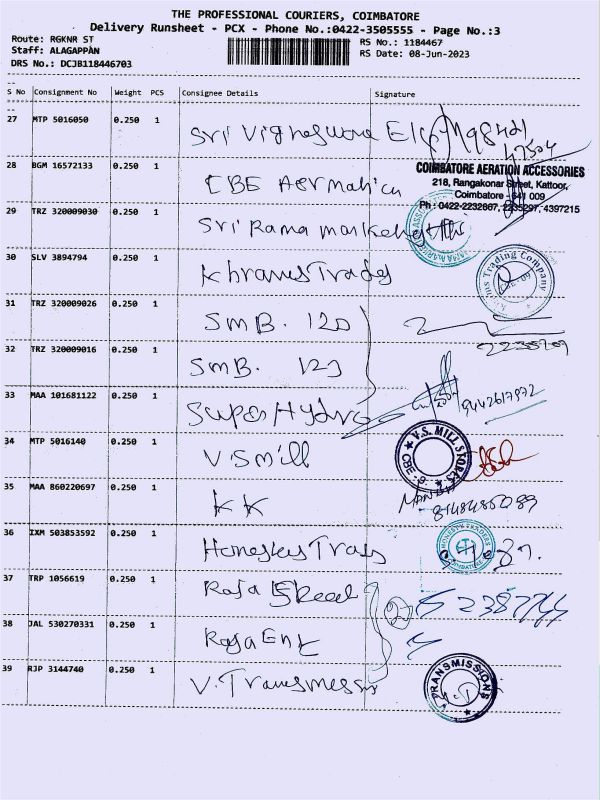 THE PROFESSIONAL COURIERS, COIMBATORE
Delivery Runsheet - PCX - Phone No.:0422-3505555 - Page No.:3
Route: RGKNR ST
RS No.: 1184467
Staff: ALAGAPPAN
RS Date: 08-Jun-2023
DRS No.: DCJB118446703
S No Consignment No Weight PCS Consignee Details Signature
27 MTP 5016050 0.250 1 Sri Vigneswara
28 BGM 16572133 0.250 1 CBE
COIMBATORE AERATION ACCESSORIES
218, Rangakonar Street, Kattoor,
Coimbatore - 641 009
Ph : 0422-2232667, 2235297, 4397215
29 TRZ 320009030 0.250 1 Sri Rama marketing
30 SLV 3894794 0.250 1 Khrans Trades
Trading Company
31 TRZ 320009026 0.250 1 SMB. 120
32 TRZ 320009016 0.250 1 SMB. 123
33 MAA 101681122 0.250 1 Super Hydro
9442617972
34 MTP 5016140 0.250 1 V.S mill
V.S. MILL STORES CBE-9
35 MAA 860220697 0.250 1 KK
8148485089
36 IXM 503853592 0.250 1
37 TRP 1056619 0.250 1 Raja Steel
38 JAL 530270331 0.250 1 Raja Ent
39 RJP 3144740 0.250 1 V. Transmession
V TRANSMISSIONS